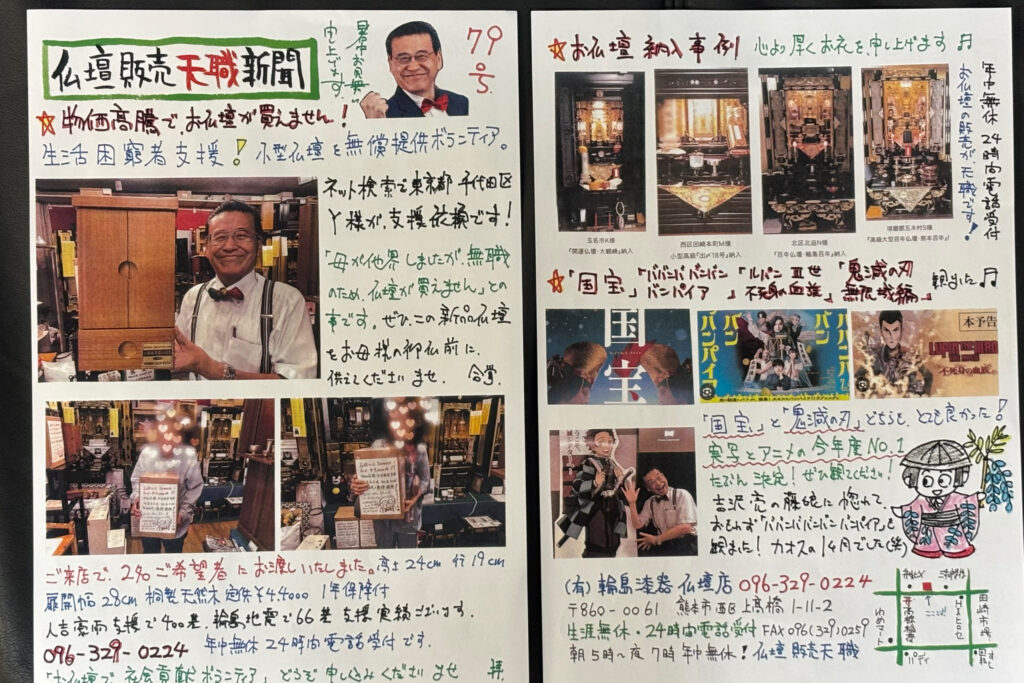 仏壇販売天職新聞
暑中お見舞い
申し上げます。
79号
☆物価高騰でお仏壇が買えません!
生活困窮者支援!小型仏壇を無償提供ボランティア。
ネット検索で東京都千代田区
Y様が、支援依頼です!
「母が他界しましたが、無職
のため、仏壇が買えません」との
事です。ぜひ、この新品仏壇
をお母様の御仏前に、
供えてくださいませ 合掌
ご来店で、2名ご希望者にお渡しいたしました。高さ24cm 行19cm
扉開幅28cm 桐製天然木 定価¥44000 1年保障付
人吉豪雨支援で400基、輪島地震で66基支援実績ございます。
096-329-0224 年中無休24時間電話受付です。
「お仏壇で社会貢献ボランティア」どうぞ申し込みくださいませ 拝
☆お仏壇納入事例 心より厚くお礼を申し上げます♬
年中無休 24時間電話受付
お仏壇の販売が、天職です!
玉名市K様
「開運仏壇・大観峰」納入
西区田崎本町M様
小型高級「出〆18号」納入
北区北迫N様
「百年仏壇・輪島百年」納入
球磨郡五木村S様
「高級大型百年仏壇・熊本百年」
☆「国宝」「ババンババンバンバンパイア」「ルパンⅢ世 不死身の血族」「鬼滅の刃 無限城編」観ました♬
国宝
ババンババンバンバンパイア
本予告
不死身の血族
「国宝」と「鬼滅の刃」どちらも、とても良かった!
実写とアニメの今年度No.1
たぶん決定!ぜひ観てください!
吉沢亮の藤娘に惚れて
おもわず「ババンババンバンバンパイア」も
観ました!カオスの1ヶ月でした(笑)
(有)輪島漆器仏壇店 096-329-0224
〒860-0061 熊本市西区上高橋1-11-2
生涯無休・24時間電話受付 FAX096(329)0259
朝5時~夜7時年中無休!仏壇販売天職
ココ
田崎市場